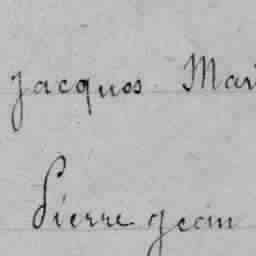 Jacques Mari
Pierre Jean